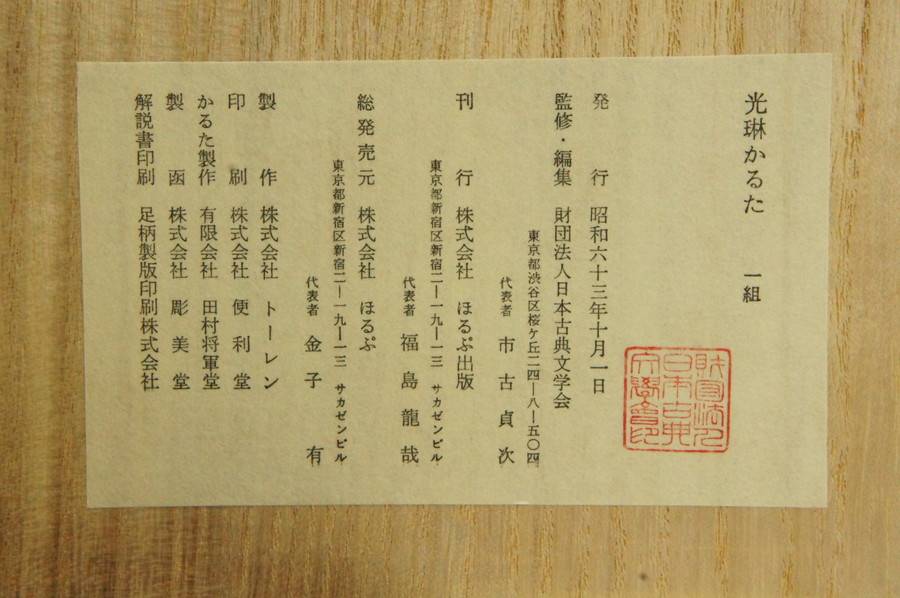 光琳かるた 一組
財団法人
日本古典
文學會印
発行 昭和六十三年十月一日
監修・編集 財団法人日本古典文学会
東京都渋谷区桜ケ丘二四―八―五〇四
代表者 市古貞次
刊行 株式会社 ほるぷ出版
東京都新宿区新宿二―一九―一三 サカゼンビル
代表者 福島龍哉
総発売元 株式会社 ほるぷ
東京都新宿区新宿二―一九―一三 サカゼンビル
代表者 金子有
製作 株式会社 トーレン
印刷 株式会社 便利堂
かるた製作 有限会社 田村将軍堂
製函 株式会社 彫美堂
解説書印刷 足柄製版印刷株式会社